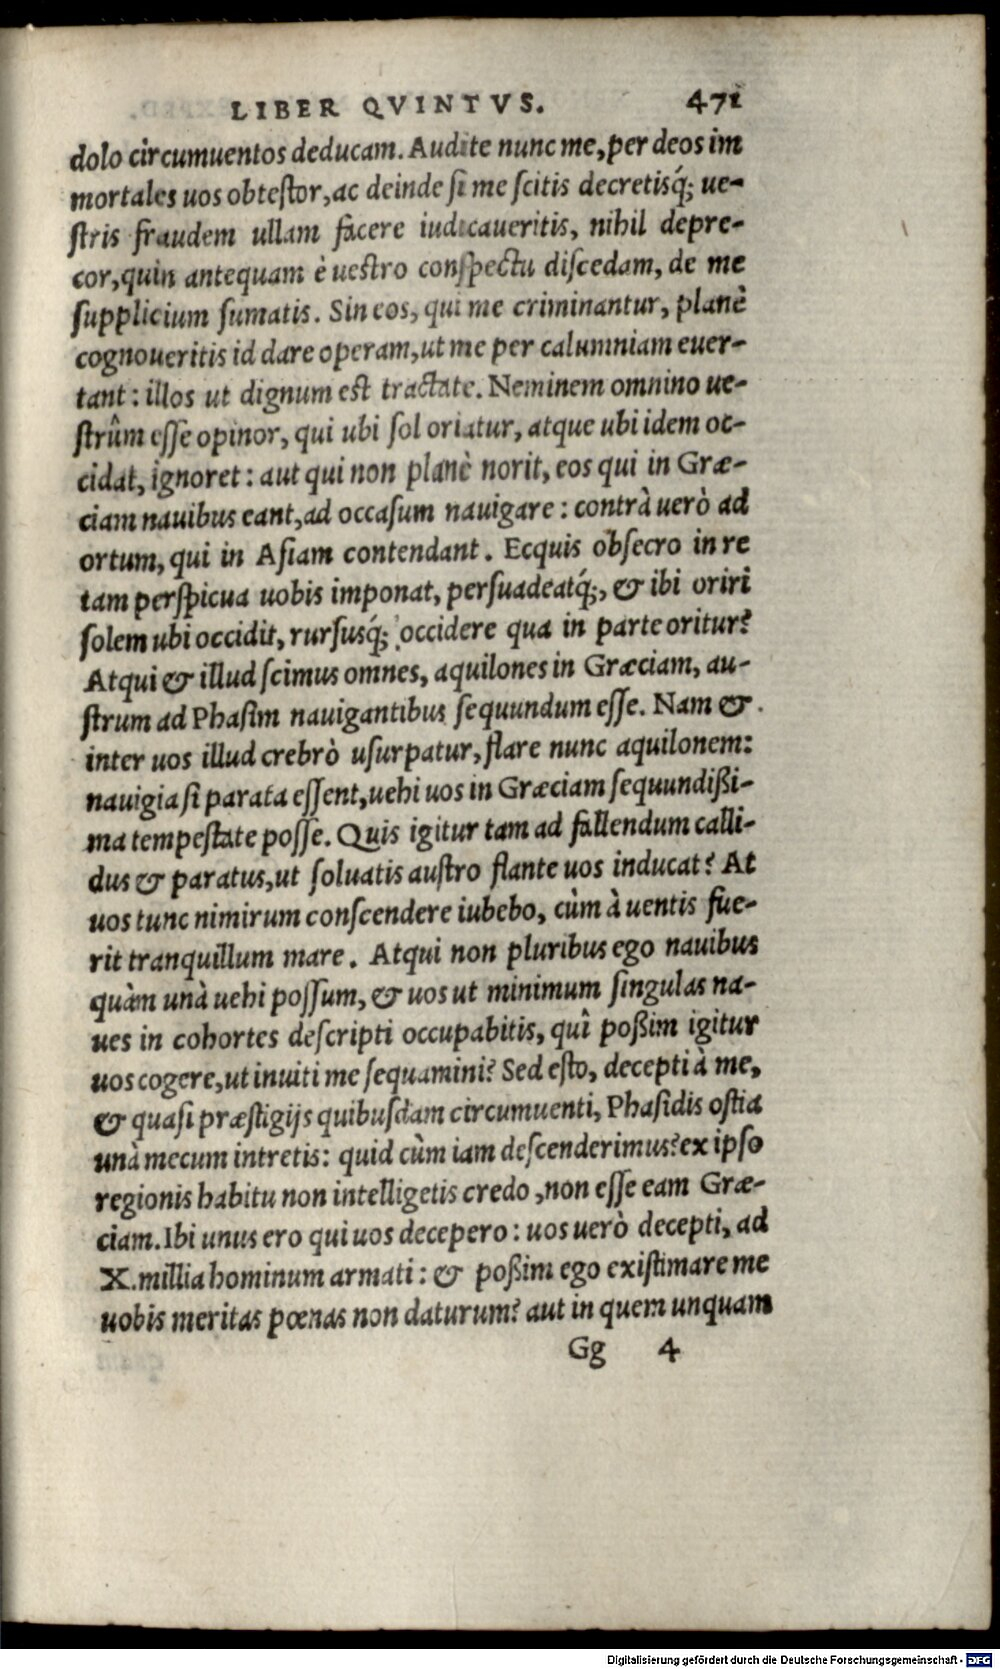 LIBER QVINTVS. 471
dolo circumuentos deducam. Audite nunc me, per deos im
mortales uos obtestor, ac deinde si me scitis decretisq́; ue-
stris fraudem ullam facere iudicaueritis, nihil depre-
cor, quin antequam è uestro conspectu discedam, de me
supplicium sumatis. Sin eos, qui me criminantur, planè
cognoueritis id dare operam, ut me per calumniam euer-
tant: illos ut dignum est tractate. Neminem omnino ue-
strûm esse opinor, qui ubi sol oriatur, atque ubi idem oc-
cidat, ignoret: aut qui non planè norit, eos qui in Græ-
ciam nauibus eant, ad occasum nauigare: contrà uerò ad
ortum, qui in Asiam contendant. Ecquis obsecro in re
tam perspicua uobis imponat, persuadeatq́;, & ibi oriri
solem ubi occidit, rursusq́; occidere qua in parte oritur?
Atqui & illud scimus omnes, aquilones in Græciam, au-
strum ad Phasim nauigantibus sequundum esse. Nam &
inter uos illud crebrò usurpatur, flare nunc aquilonem:
nauigia si parata essent, uehi uos in Græciam sequundißi-
ma tempestate posse. Quis igitur tam ad fallendum calli-
dus & paratus, ut soluatis austro flante uos inducat? At
uos tunc nimirum conscendere iubebo, cùm à uentis fue-
rit tranquillum mare. Atqui non pluribus ego nauibus
quàm unà uehi possum, & uos ut minimum singulas na-
ues in cohortes descripti occupabitis, quî poßim igitur
uos cogere, ut inuiti me sequamini? Sed esto, decepti à me,
& quasi præstigijs quibusdam circumuenti, Phasidis ostia
unà mecum intretis: quid cùm iam descenderimus? ex ipso
regionis habitu non intelligetis credo, non esse eam Græ-
ciam. Ibi unus ero qui uos decepero: uos uerò decepti, ad
X. millia hominum armati: & poßim ego existimare me
uobis meritas pœnas non daturum? aut in quem unquam
Gg 4
Digitalisierung gefördert durch die Deutsche Forschungsgemeinschaft - DFG